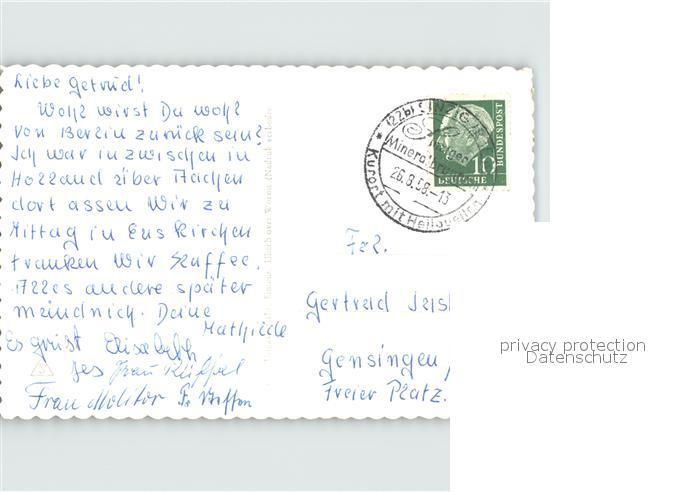 Liebe Getrud!
Wohl wirst Du wohl
von Berlin zurück sein?
Ich war inzwischen in
Holland über Aachen
dort assen Wir zu
Mittag in Euskirchen
tranken Wir Kaffee.
Alles andere später
meindnich. Deine
Mathilde
Es grüst Elisabeth
Frau
Frau Molitor
(22b)
Mineral
26.8.58.-13
Kurort mit Heilquellen
10
DEUTSCHE
BUNDESPOST
Frl.
Gertrud
Gensingen,
Freier Platz.
privacy protection
Datenschutz